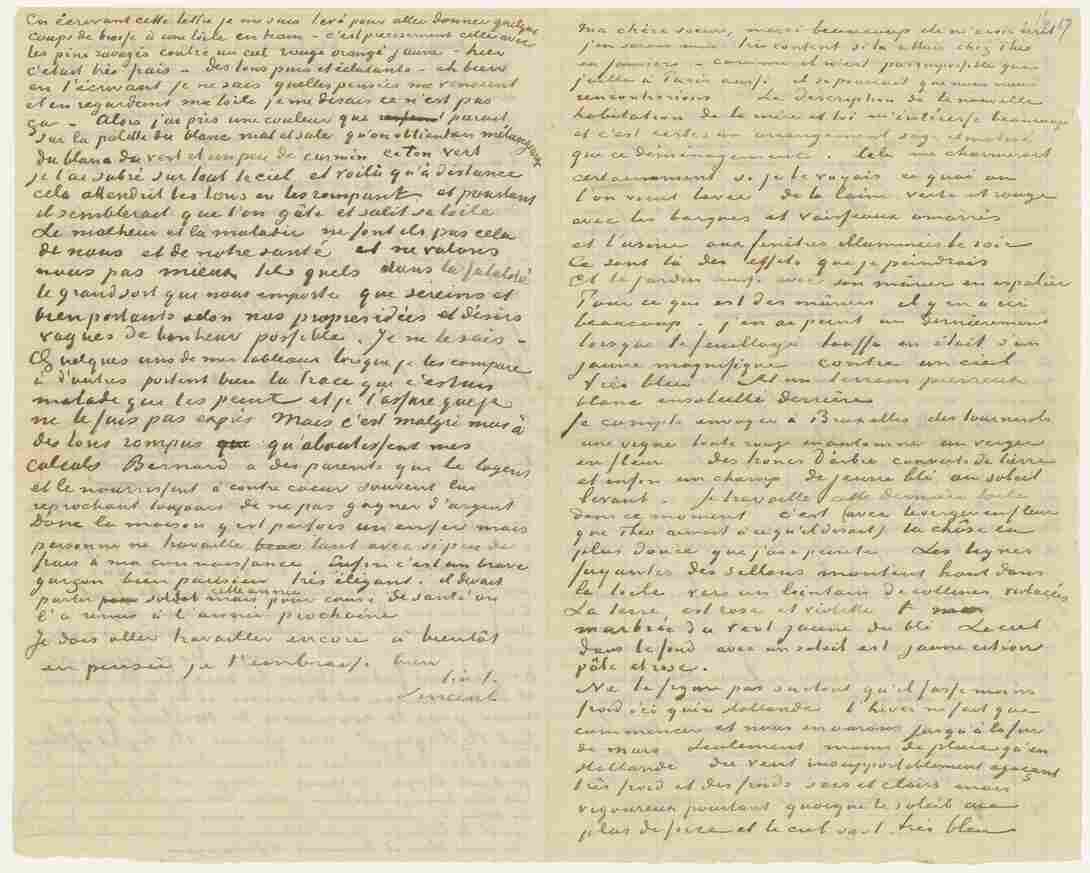 En écrivant cette lettre je me suis levé pour aller donner quelques
coups de brosse à une toile en train – c'est precisement celle avec
les pins ravagés contre un ciel rouge orangé jaune – hier
c'était très frais – des tons purs et éclatants – eh bien
en t'écrivant je ne sais quelles pensées me venaient
et en regardant ma toile je me disais ce n'est pas
ça – Alors j'ai pris une couleur que parait
sur la palette du blanc mat et sale qu'on obtient en mélangeant
du blanc du vert et un peu de carmin ce ton vert
je l'ai sabré sur tout le ciel et voilà qu'à distance
cela attendrit les tons en les rompant et pourtant
il semblerait que l'on gâte et salit sa toile
Le malheur et la maladie ne font ils pas cela
de nous et de notre santé et ne valons
nous pas mieux tels quels dans la fatalité
le grand sort que nous emporte que sereins et
bien portants selon nos propres idées et désirs
vagues de bonheur possible. Je ne le sais –
Quelques uns de mes tableaux lorsque je les compare
à d'autres portent bien la trace que c'est un
malade que les peint et je t'assure que je
ne le fais pas exprès Mais c'est malgré moi à
des tons rompus que qu'aboutissent mes
calculs Bernard a des parents que le logent
et le nourrissent à contre coeur souvent lui
reprochant toujours de ne pas gagner d'argent
Donc la maison y est parfois un enfer mais
personne ne travaille tant avec si peu de
frais à ma connaissance Enfin c'est un brave
garçon bien parisien très élégant. il devait
partir soldat cette année mais pour cause de santé on
l'a remis à l'année prochaine
Je dois aller travailler encore à bientôt
en pensée je t'embrasse bien
t. à t.
Vincent
ma chère soeur, merci beaucoup de m'avoir écrit
j'en serais moi très content si tu allais chez Theo
en Janvier – comme il n'est pas impossible que
j'aille à Paris aussi il se pourrait que nous nous
rencontrerions La description de la nouvelle
habitation de la mère et toi m'intéresse beaucoup
et c'est certes un arrangement sage et motivé
que ce déménagement. Cela me charmerait
certainement si je le voyais ce quai où
l'on vient laver de la laine verte et rouge
avec les barques et vaisseaux amarrés
et l'usine aux fenêtres illuminées le soir
Ce sont là des effets que je peindrais
Et le jardin aussi avec son mûrier en espalier
Pour ce qui est des mûriers il y en a ici
beaucoup. j'en ai peint un dernièrement
lorsque le feuillage touffu en était d'un
jaune magnifique contre un ciel
très bleu Et un terrain pierreux
blanc ensoleillé derrière
Je compte envoyer à Bruxelles des tournesols
une vigne toute rouge en automne un verger
en fleur des troncs d'arbre couverts de lierre
et enfin un champ de jeune blé au soleil
levant. Je travaille cette dernière toile
dans ce moment c'est (avec le verger en fleur
que Theo aimait à ce qu'il disait) la chôse la
plus douce que j'aie peinte Les lignes
fuyantes des sillons montent haut dans
la toile vers un lointain de collines violacées
La terre est rose et violette
marbrée du vert jaune du blé Le ciel
dans le fond avec un soleil est jaune citron
pâle et rose.
Ne te figure pas surtout qu'il fasse moins
froid ici qu'en Hollande l'hiver ne fait que
commencer et nous en aurons jusqu'à la fin
de mars Seulement moins de pluie qu'en
Hollande du vent insupportablement agaçant
très froid et des froids secs et clairs mais
vigoureux pourtant quoique le soleil aie
plus de force et le ciel soit très bleu